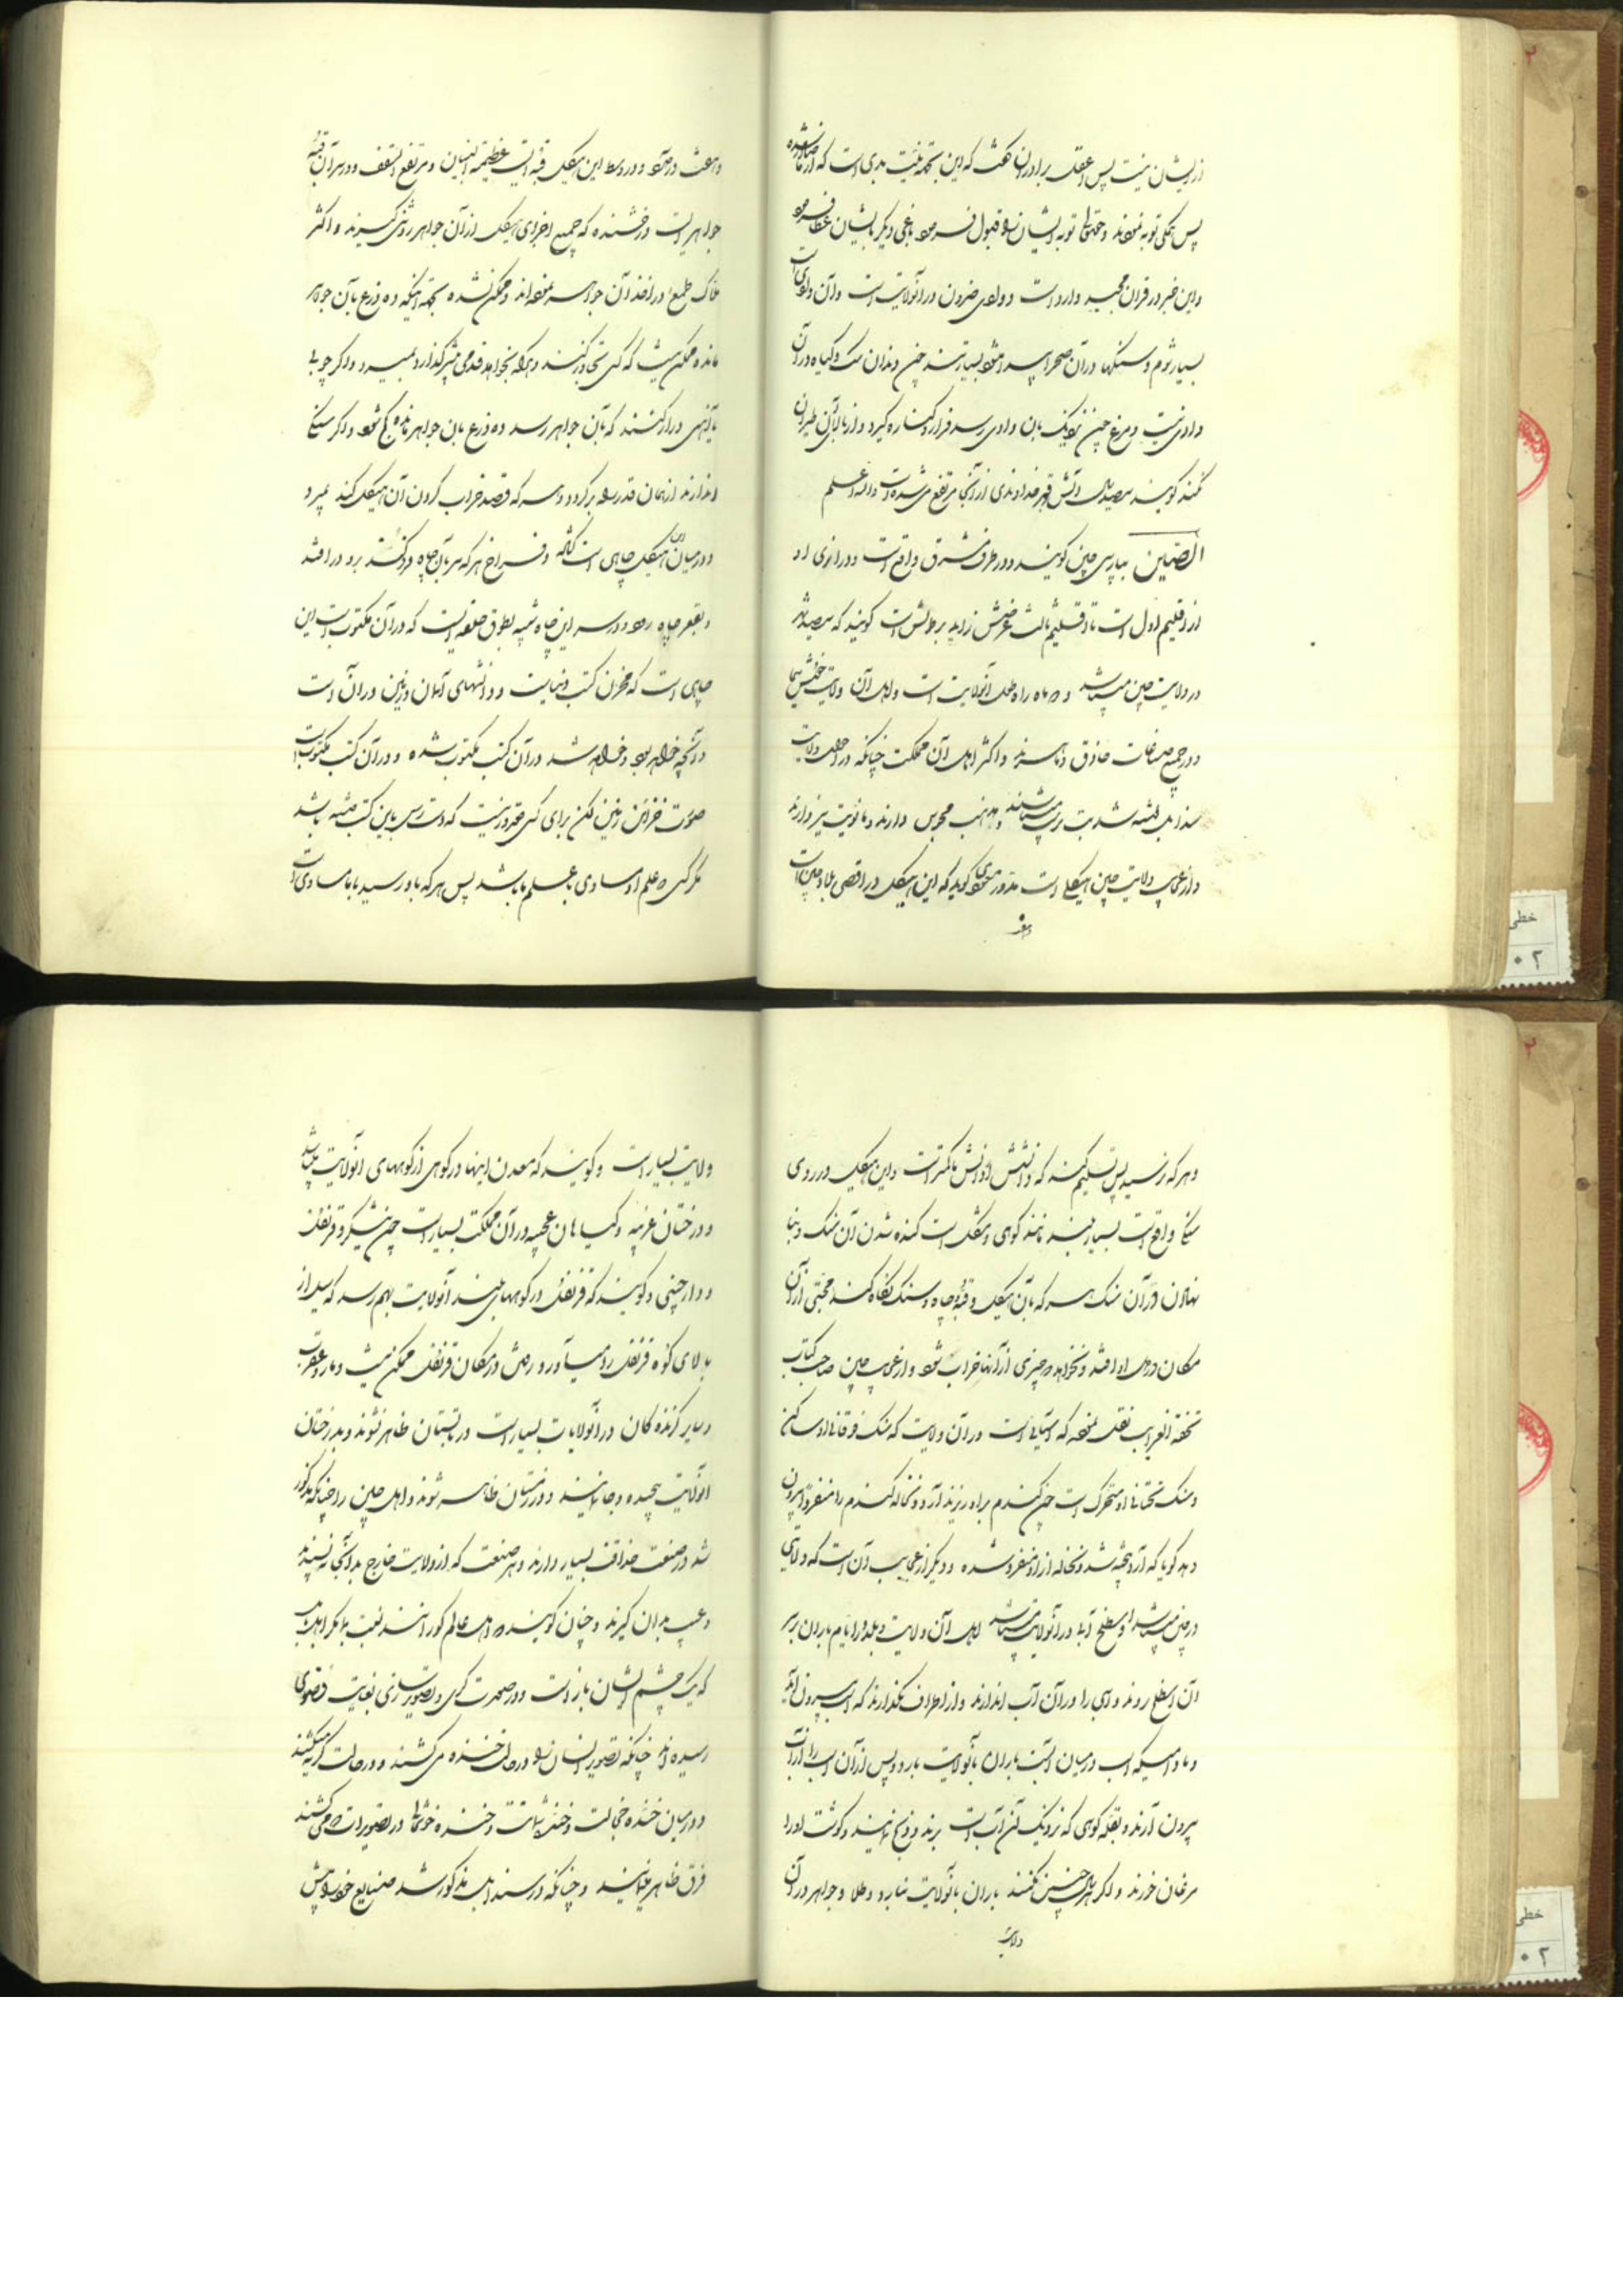 از ایشان نیست پس اعقل برادران گفت که این بجهة نیت بدی است که از ما صادر شده
پس همگی توبه نمودند و حقتعالی توبه ایشان را قبول فرمود باغی دیگر بایشان عطا فرمود
و این خبر در قران مجید وارد است و وادی ضروان در آنولایت است و آن وادی
بسیار شوم و سنگها در آن صحرا پیدا میشود بسیار تند چون دندان سگ و گیاه در آن
وادی نیست و مرغ چون نزدیک بان وادی رسد فرار و کناره گیرد و از بالای آن طیران
نکند گویند سیصد سال آتش قهر خداوندی از آنجا مرتفع می شده است والله اعلم
الصین بپارسی چین گویند و در طرف مشرق واقع است و درازی او
از اقلیم اول است تا اقلیم ثالث عرضش زاید بر طولش است گویند که سیصد شهر
در ولایت چین میباشد و دو ماه راه طول آنولایت است و اهل آن ولایت خوش سیما
و در جمیع صناعات حاذق و ماهرند و اکثر اهل آن مملکت چنانکه در احوال ولایت
سندابل نوشته شد بت پرست میباشند و مذهب مجوس دارند و مانویت نیز دارند
و از عجایب ولایت چین هیکلی است مدور مسعودی گوید که این هیکل در اقصی بلاد چین است
واهف
و هفت در دارد و در وسط این هیکل قبه ایست عظیمة البنیان و مرتفع السقف و در سر آن قبه
جواهریست درخشنده که جمیع اجزای هیکل از آن جواهر روشنی گیرند و اکثر
ملوک طمع در اخذ آن جواهر نموده اند و ممکن نشده بجهة اینکه ده ذرع بآن جواهر
مانده ممکن نیست که کسی تجاوز کند و هر که بخواهد قدمی پیشتر گذارد بمیرد و اگر چوب یا
یا آهنی دراز کنند که بآن جواهر رسد ده ذرع بان جواهر مانده کج شود و اگر سنگی
اندازند از همان قدر راه برگردد و هر که قصد خراب کردن آن هیکل کند بمیرد
و در میان این هیکل چاهی است گشاده و فراخ هر که سر بآن چاه فرو کند برو در افتد
و بقعر چاه رود و در سر این چاه شبیه بطوق حلقه ایست که در آن مکتوب است این
چاهی است که مخزن کتب دنیاست و دانشهای آسمان و زمین در آن است
و آنچه خواهد بود و خواهد شد در آن کتب مکتوب شده و در آن کتب مکتوب است
صورت خزائن زمین لکن برای کسی مقدور نیست که دسترس باین کتب داشته باشد
مگر کسی که علم او مساوی با علم ما باشد پس هر که باو رسید با ما مساوی است
و هر که نرسید پس تسلیم کند که دانش او از دانش ما کمتر است و این هیکل در روی
سنگی واقع است بسیار بلند مانند کوهی و مشکل است کنده شدن آن سنگ و بنا
نهادن در آن سنگ هر که بآن هیکل و قبه و چاه و سنگ نگاه کند محبتی از آن
مکان در دل او افتد و نخواهد که چیزی از آنها خراب شود و از عجایب چین صاحب کتاب
تحفة الغرایب نقل نموده که آسیائی است در آن ولایت که سنگ فوقانی او ساکن
و سنگ تحتانی او متحرک است چون گندم براو ریزند آرد و نخاله گندم را منفرد بیرون
دهد گویا که آرد پخته شد و نخاله از او منفرد شده و دیگر از عجایب آن است که ولایتی
در چین میباشد و سطح آب در آنولایت میباشد اهل آن ولایت و بلد در ایام باران بر سر
آن اسطخر روند و اسبی را در آن آب اندازند و از اطراف نگذارند که اسب بیرون آید
و مادامیکه اسب در میان آبست باران بآنولایت بارد و پس از آن اسب را از آب
بیرون آرند و بقله کوهی که نزدیک آن آب است برند و ذبح نمایند و گوشت او را
مرغان خورند و اگر هر سال چنین نکنند باران بآنولایت نبارد و طلا و جواهر در آن
ولایت
ولایت بسیار است و گویند که معدن اینها در کوهی از کوههای آنولایت میباشد
و درختان غریبه و گیاهان عجیبه در آن مملکت بسیار است چون نیشکر و قرنفل
و دارچینی و گویند که قرنفل در کوههای بلند آنولایت بهم رسد که سیل از
بالای کوه قرنفل را میاورد و رفتن در مکان قرنفل ممکن نیست و مار و عقرب
و سایر گزنده گان در آنولایات بسیار است در تابستان ظاهر نشوند و بدرختان
آنولایت پیچیده و جا نمایند و در زمستان ظاهر شوند و اهل چین را چنانکه مذکور
شد در صنعت حذاقت بسیار دارند و هر صنعت که از ولایت خارج بدانجا نپسندند
و عیب بدان گیرند و چنان گویند که اهل عالم کورانند نعت ما مگر اهل بابل
که یک چشم ایشان باز است و در صورت گری و تصویر سازی بغایت قصوی
رسیده اند چنانکه تصویر انسان را در حال خنده می کشند و در حالت گریه میکشند
و در میان خنده خجالت و خنده شماتت و خنده خوشحال در تصویرات که می کشند
فرق ظاهر مینمایند و چنانکه در سندابل مذکور شد صنایع خود را پیش